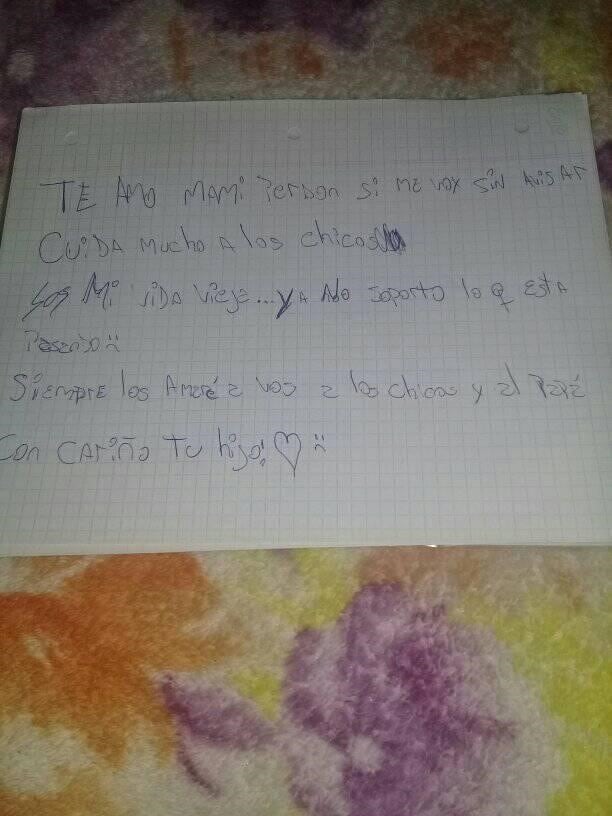 TE AMO MAMi PerDon Si ME VOY SiN AVISAR
CuiDA Mucho A los chicos
SOS Mi ViDA Vieje...YA No soporto lo q ESTA
Pasando :(
SiEMPRE los AMaré a vos a los chicos y al Papá
Con CARiÑo Tu hijo! ♡ :(